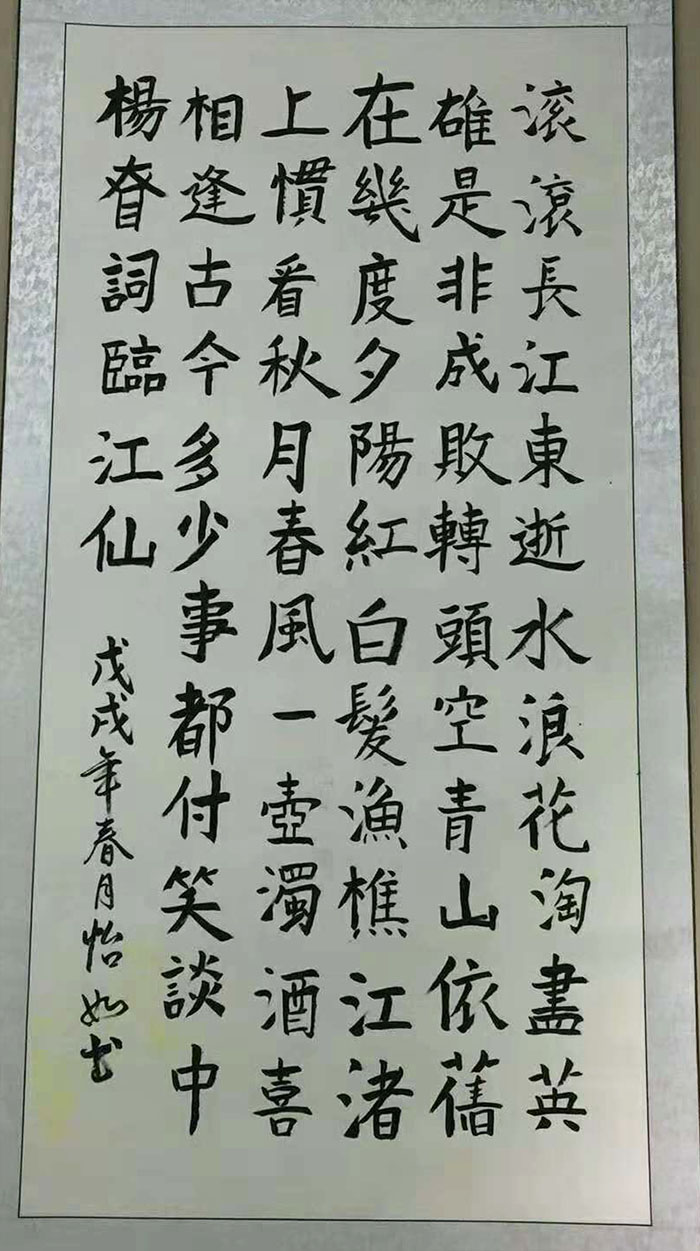 滚滚長江東逝水浪花淘盡英
雄是非成敗轉頭空青山依舊
在幾度夕陽紅白髮漁樵江渚
上慣看秋月春風一壺濁酒喜
相逢古今多少事都付笑談中
楊眘詞臨江仙
戊戌年春月怡如书